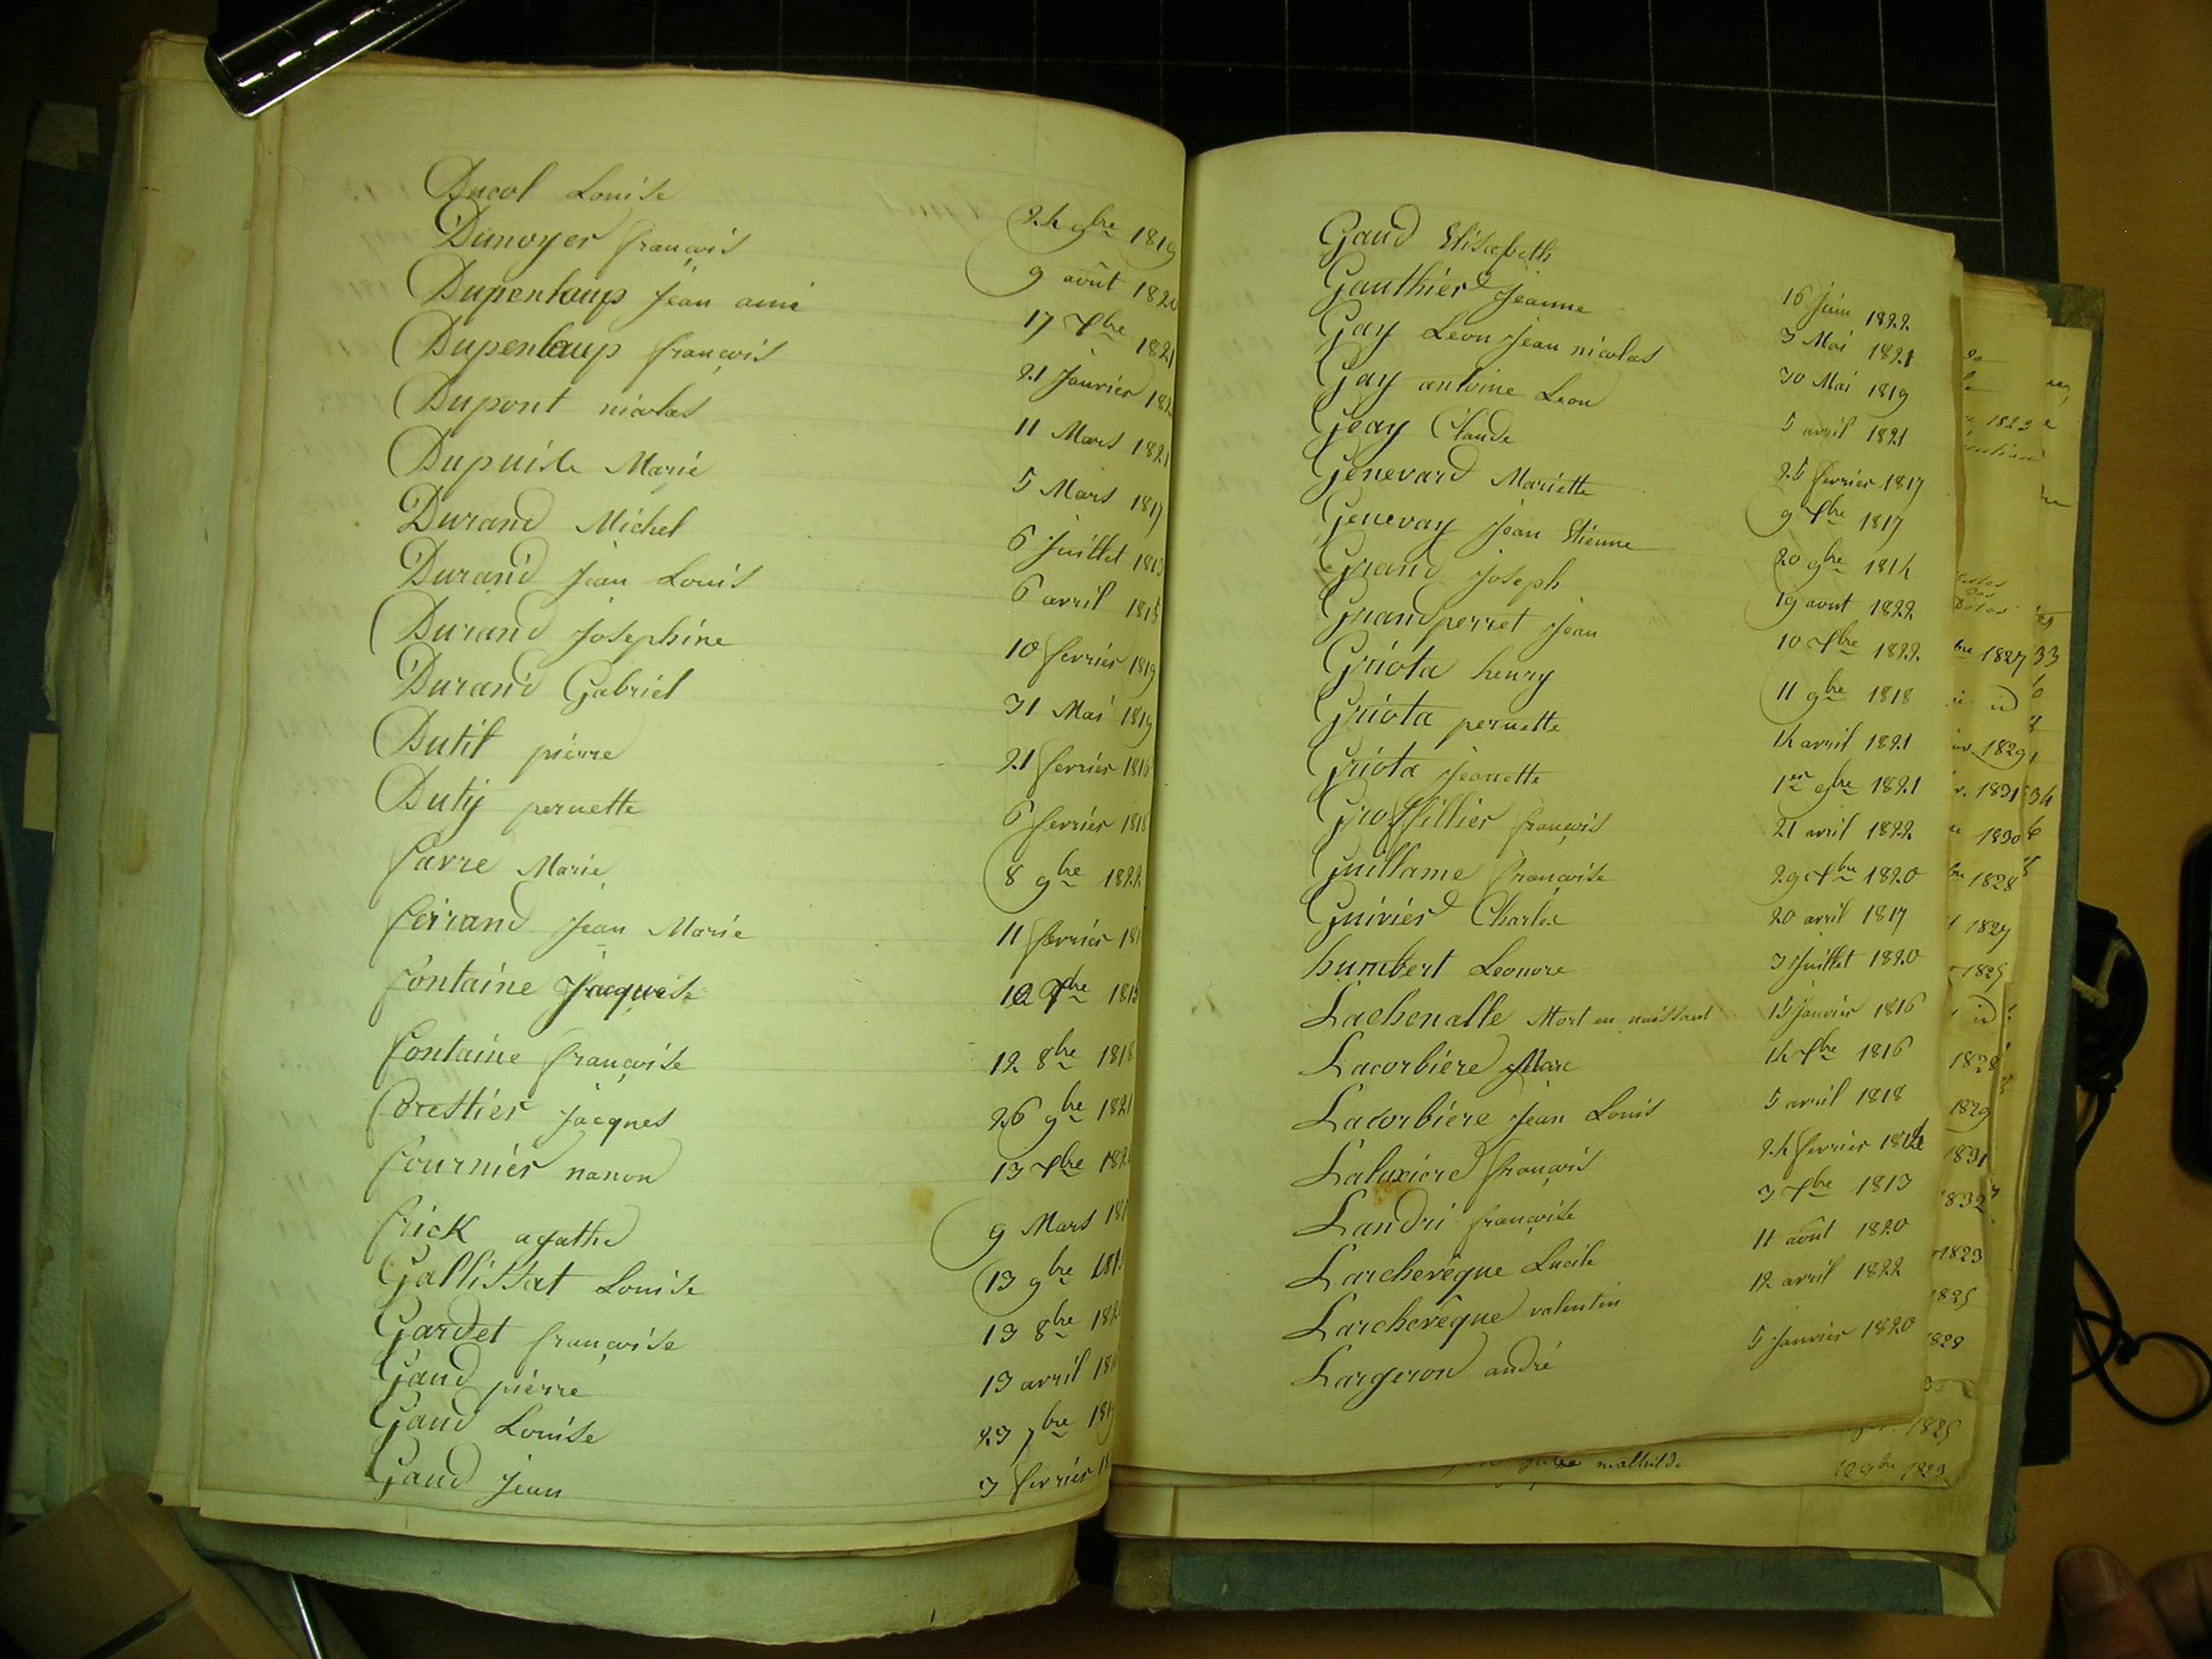 Ducol Louise 24 9bre 1819
Dunoyer françois 9 août 1820
Dupenloup Jean aimé 17 Xbre 1821
Dupenloup françois 21 Janvier
Dupont nicolas 11 Mars 1821
Dupuis Marie 5 Mars 1817
Durand Michel 6 Juillet 1813
Durand Jean Louis 6 avril 1815
Durand Josephine 10 fevrier 1819
Durand Gabriel 31 Mai 1819
Dutil pierre 21 fevrier 1816
Duty pernette 6 fevrier 1818
favre Marie 8 9bre 1822
ferrand Jean Marie 11 fevrier
fontaine Jacquese 10 Xbre 1815
fontaine françoise 12 8bre 1818
forestier Jacques 26 9bre 1821
fournier nanon 13 Xbre
frick agathe 9 Mars
Gallissat Louise 13 9bre
Gardet françoise 13 8bre
Gaud pierre 13 avril
Gaud Louise 23 7bre
Gaud Jean 3 fevrier
Gaud Elisabeth 16 Juin 1822
Gauthier Jeanne 3 Mai 1821
Gay Leon Jean nicolas 30 Mai 1819
Gay antoine Leon 5 avril 1821
Geay Claude 25 fevrier 1817
Genevard Mariette 9 Xbre 1817
Genevay Jean Etienne 20 9bre 1814
Grand Joseph 19 aout 1822
Grandperret Jean 10 Xbre 1822
Griota henry 11 9bre 1818
Griota pernette 14 avril 1821
Griota Jeanette 1er 9bre 1821
Grosfillier françois 21 avril 1822
Guillame françoise 29 Xbre 1820
Guirier Charles 20 avril 1817
humbert Leonore 3 Juillet 1820
Lachenalle Mort en naissant 15 Janvier 1816
Lacorbiere Marc 14 Xbre 1816
Lacorbiere Jean Louis 5 avril 1818
Laluxiere françois 24 fevrier
Landri françoise 3 Xbre 1813
Larchevêque Lucile 11 août 1820
Larchevêque valentin 12 avril 1822
Largeron andré 5 Janvier 1820
mathilde 12 9bre 1823